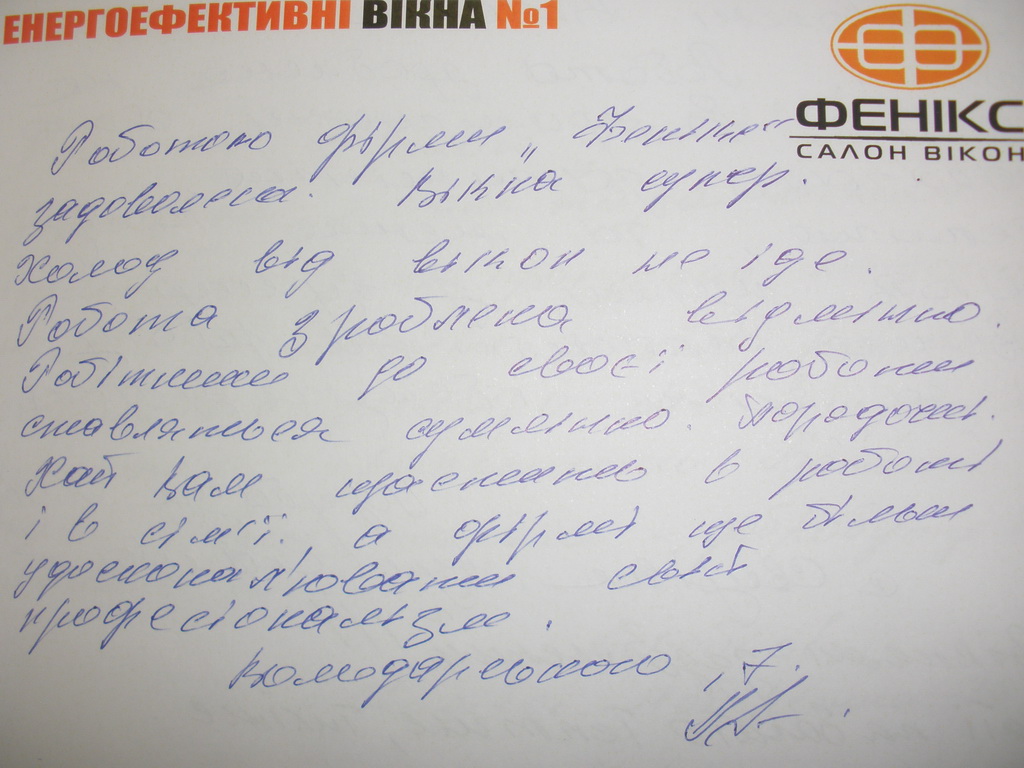 ЕНЕРГОЕФЕКТИВНІ ВІКНА №1
ФЕНІКС
САЛОН ВІКОН
Роботою фірми „Фенікс"
задоволена. Вікна супер.
Холод від вікон не іде.
Робота зроблена відмінно.
Робітники до своєї роботи
ставляться сумлінно. Порядочні.
Хай Вам щастить в роботі
і в сім'ї. а фірмі ще більш
удосконал'ювати свій
професіоналізм.